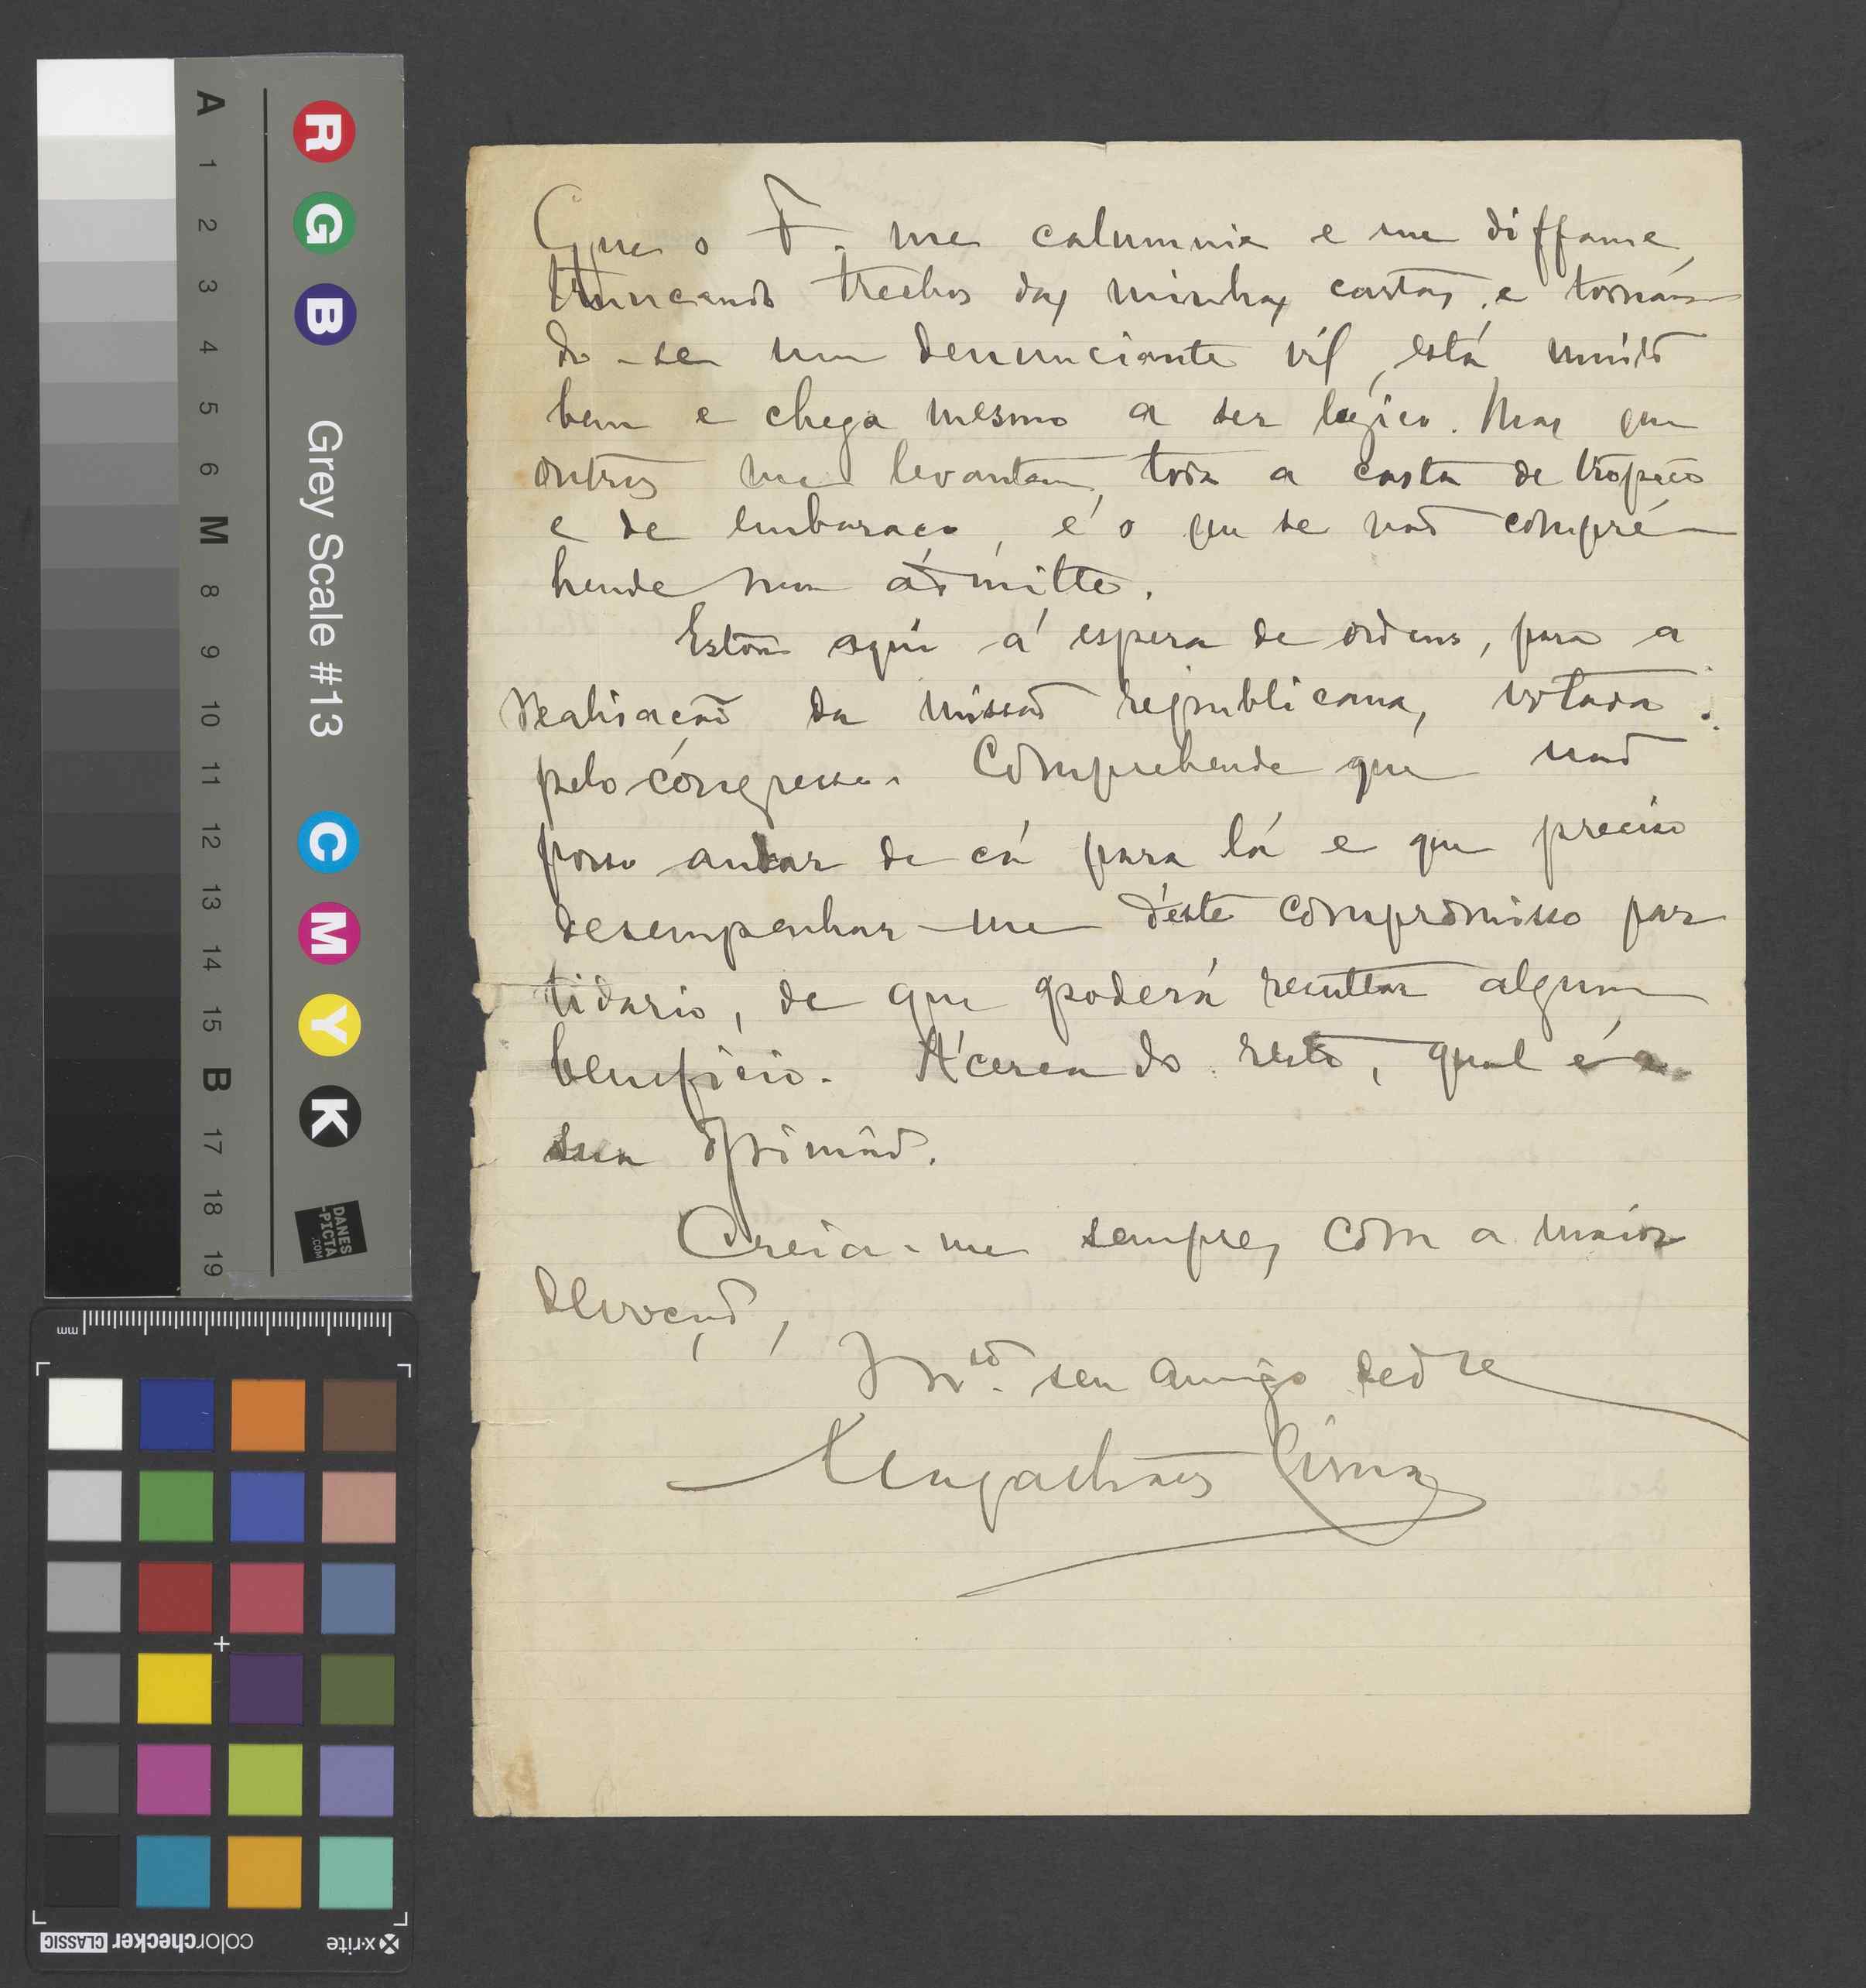 Que o F. me calumnie e me diffame,
truncando trechos das minhas cartas, e tornan-
do-se um denunciante vil, está muito
bem e chega mesmo a ser logico. Mas que
outros me levantem, toda a casta de tropeço
e de embaraço, é o que se não compre-
hende nem admitte.
Estou aqui á espera de ordens, para a
realisação da missão republicana, votada
pelo congresso. Comprehende que não
posso andar de cá para lá e que preciso
desempenhar-me d'este compromisso par
tidario, de que poderá resultar algum
beneficio. Ácerca do resto, qual é a
sua opinião.
Creia-me sempre, com a maior
devoção,
seu amigo ded
Magalhães Lima
A 1 2 3 4 5 6 M 8 9 10 11 12 13 14 15 B 17 18 19
R G B Grey Scale #13 C M Y K
DANES
-PICTA
.COM
mm
x-rite colorchecker CLASSIC